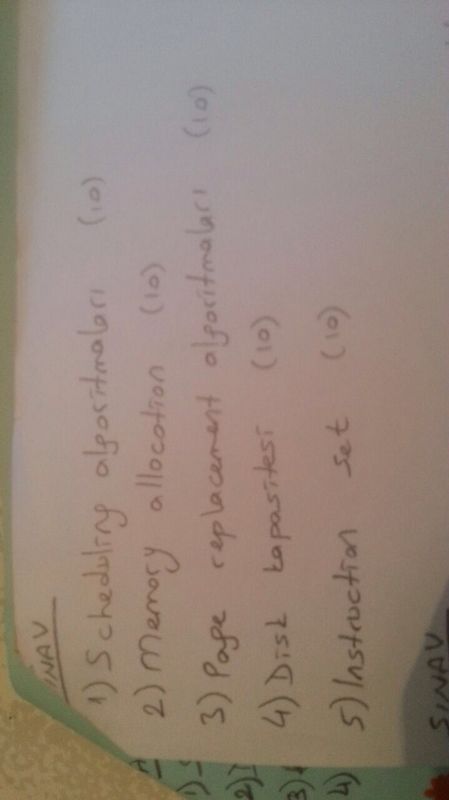 SINAV
1) Scheduling algoritmaları (10)
2) Memory allocation (10)
3) Page replacement algoritmaları (10)
4) Disk kapasitesi (10)
5) Instruction set (10)
SINAV
1)
2)
3)
4)